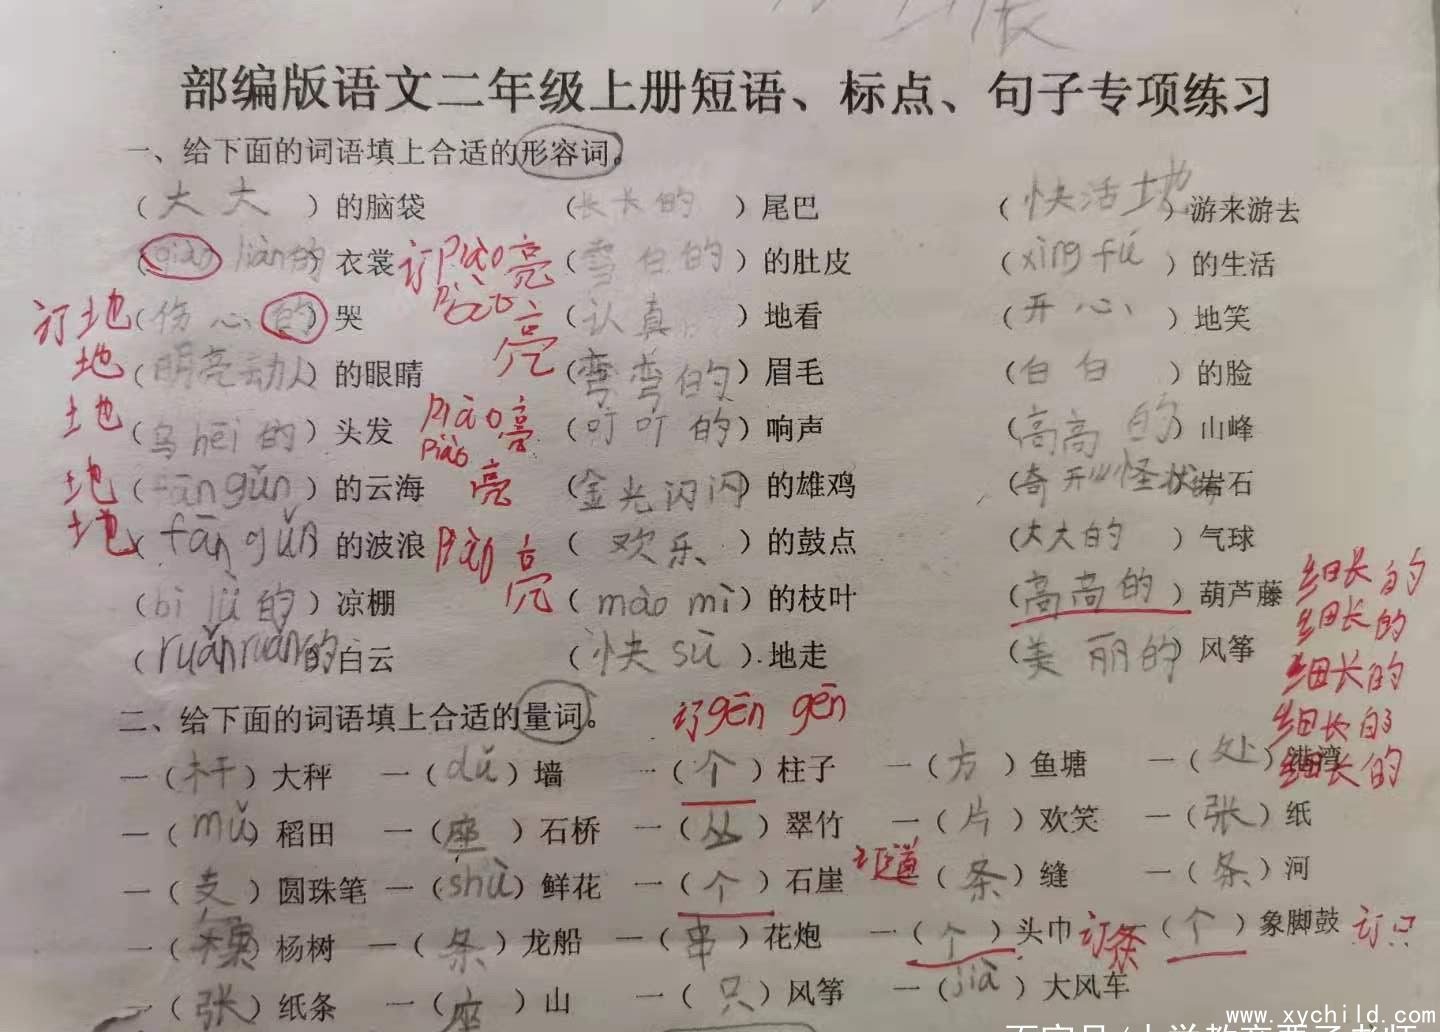 部编版语文二年级上册短语、标点、句子专项练习
一、给下面的词语填上合适的形容词。
（大大）的脑袋 （长长的）尾巴 （快活地）游来游去
（qiào liàn的）衣裳 订piào亮 （雪白的）的肚皮 （xìng fú）的生活
订地（伤心的）哭 piào亮 （认真）地看 （开心）地笑
地（明亮动人）的眼睛 （弯弯的）眉毛 （白白）的脸
地（乌hēi的）头发 piào亮 （叮叮的）响声 （高高的）山峰
piào亮
地（fān gǔn）的云海 （金光闪闪）的雄鸡 （奇形怪状）岩石
地（fān gǔn）的波浪 piào亮 （欢乐）的鼓点 （大大的）气球
（bì lǜ的）凉棚 （mào mì）的枝叶 （高高的）葫芦藤 细长的
细长的
（ruǎnruǎn的）白云 （快sù）地走 （美丽的）风筝 细长的
细长的
细长的
二、给下面的词语填上合适的量词。 订gēn gēn
一（杆）大秤 一（dǔ）墙 一（个）柱子 一（方）鱼塘 一（处）港湾
一（mǔ）稻田 一（座）石桥 一（丛）翠竹 一（片）欢笑 一（张）纸
一（支）圆珠笔 一（shù）鲜花 一（个）石崖 订道 （条）缝 一（条）河
一（棵）杨树 一（条）龙船 一（串）花炮 一（个）头巾 订条 一（个）象脚鼓 订只
一（张）纸条 一（座）山 一（只）风筝 一（jià）大风车
www.xychild.com